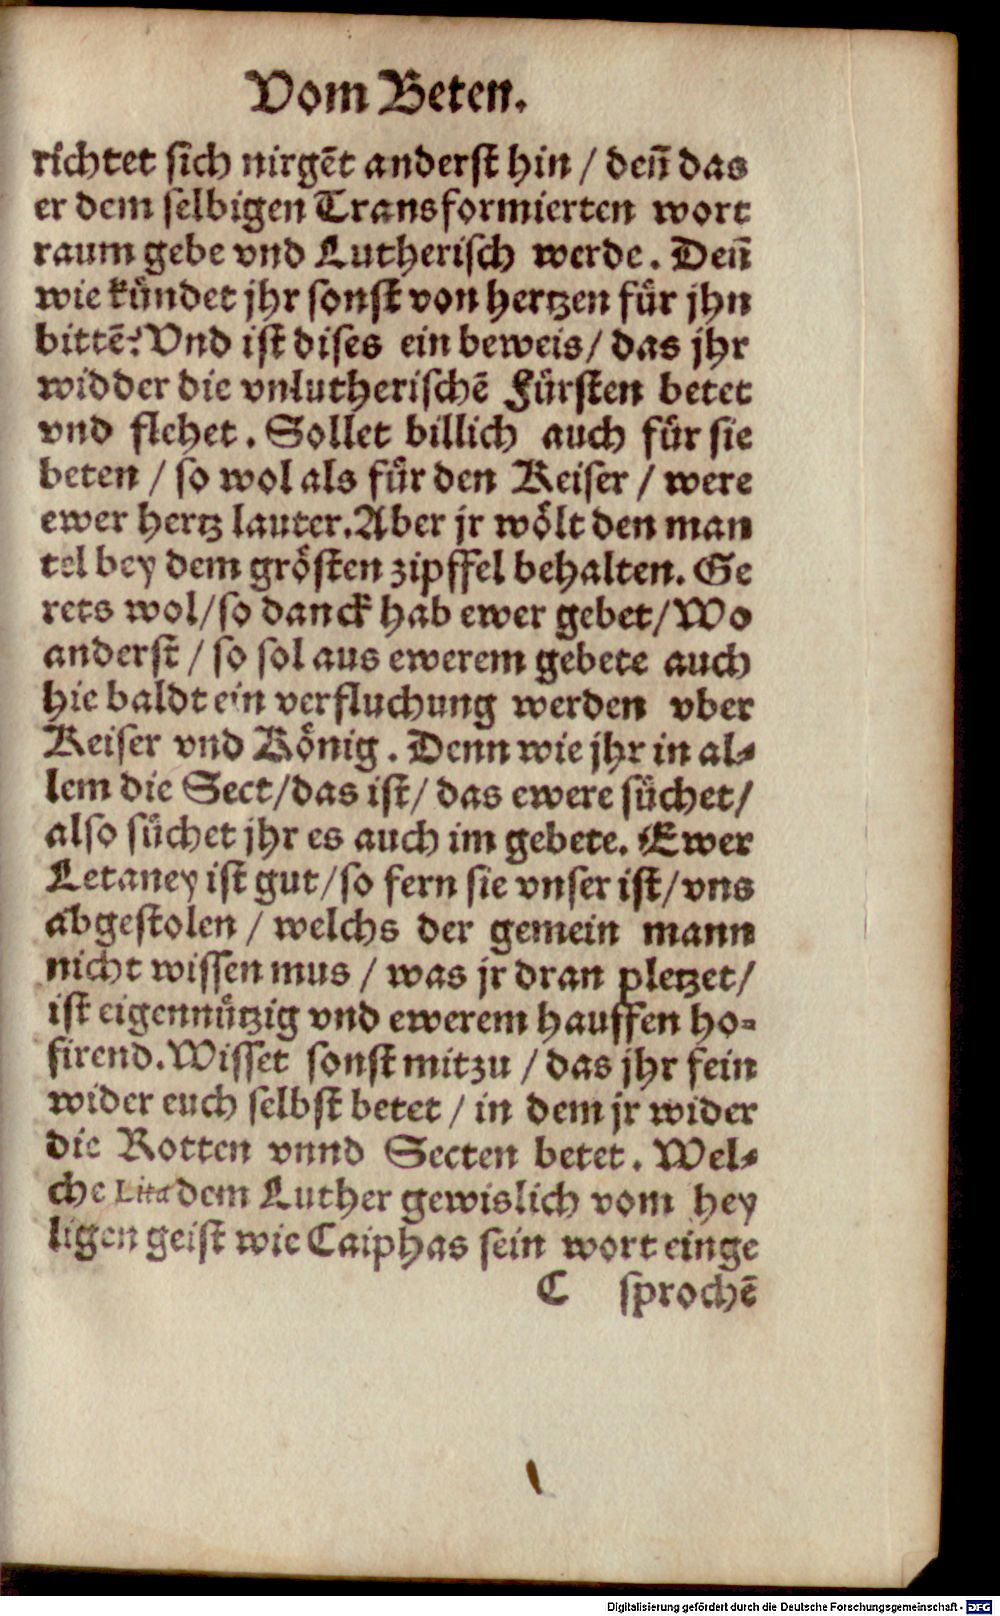 Vom Beten.
richtet sich nirgēt anderst hin / deñ das
er dem selbigen Transformierten wort
raum gebe vnd Lutherisch werde. Deñ
wie kündet jhr sonst von hertzen für jhn
bittē? Vnd ist dises ein beweis / das jhr
widder die vnlutherischē Fürsten betet
vnd flehet. Sollet billich auch für sie
beten / so wol als für den Keiser / were
ewer hertz lauter. Aber jr wölt den man
tel bey dem grösten zipffel behalten. Ge
rets wol / so danck hab ewer gebet / Wo
anderst / so sol aus ewerem gebete auch
hie baldt ein verfluchung werden vber
Keiser vnd König. Denn wie jhr in al⸗
lem die Sect / das ist / das ewere süchet /
also süchet jhr es auch im gebete. Ewer
Letaney ist gut / so fern sie vnser ist / vns
abgestolen / welchs der gemein mann
nicht wissen mus / was jr dran pletzet /
ist eigennützig vnd ewerem hauffen ho⸗
firend. Wisset sonst mitzu / das jhr fein
wider euch selbst betet / in dem jr wider
die Rotten vnnd Secten betet. Wel⸗
che Lita dem Luther gewislich vom hey
ligen geist wie Caiphas sein wort einge
C sprochē
Digitalisierung gefördert durch die Deutsche Forschungsgemeinschaft - DFG